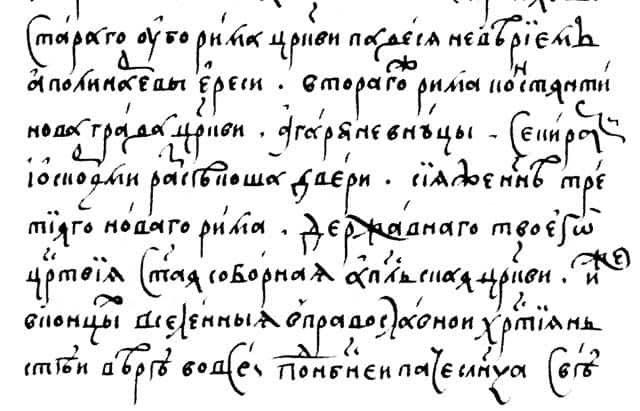 Стараго оубо рима цр҃кви падеся невѣрїемъ
аполинаевы ереси . втораго рима костⷩянти
нова града цр҃кви . агаряне внуцы . Секираⷨ
їоскоⷬдми расѣкоша двери . сїяже нн҃ѣ тре
тїяго новаго рима . державнаго твоегѡ
црⷭ҇твїя Ст҃ая соборная апⷭ҇льская цр҃кви . иⷤе
вконцыⷯ вселенныя вправославнои хрⷭ҇тїянь
стѣи вѣрѣ вовсеи поⷣнбⷭ҇неи паче слн҃ца свѣ